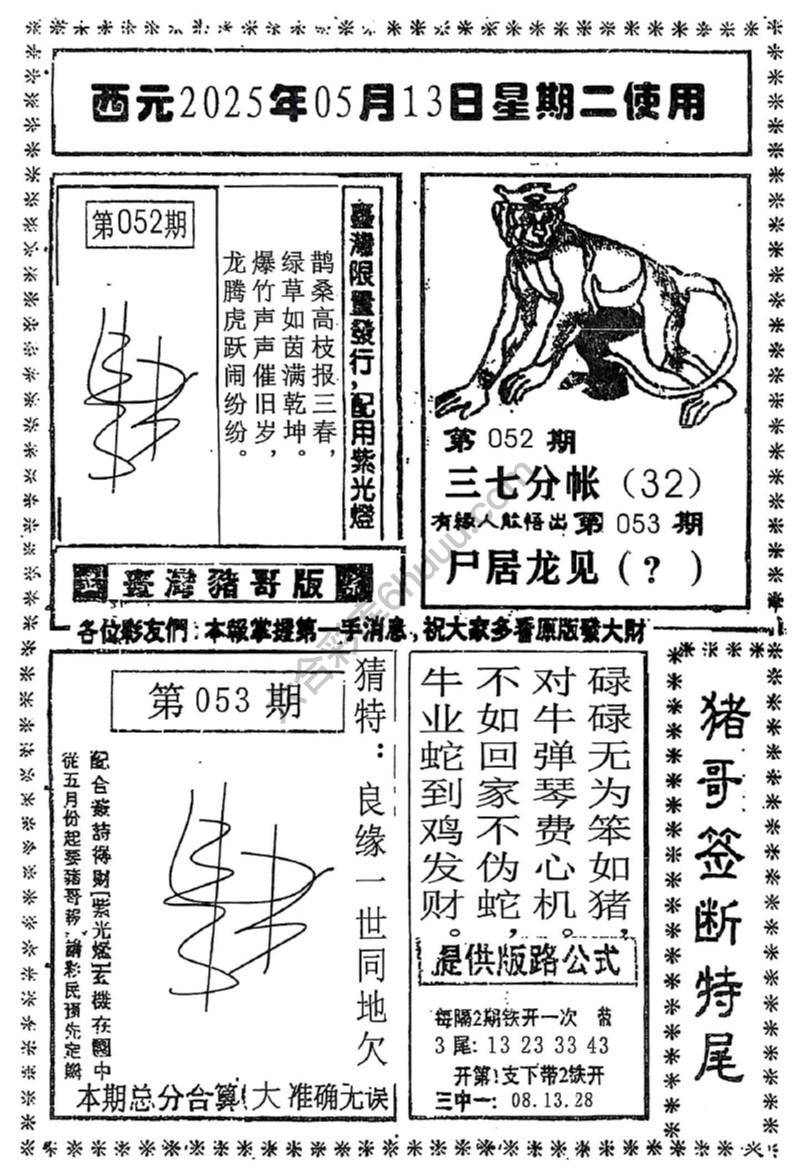 西元2025年05月13日星期二使用
第052期
鹊桑高枝报三春，
绿草如茵满乾坤。
爆竹声声催旧岁，
龙腾虎跃闹纷纷。
臺灣限量發行，配用紫光燈
第 052 期
三七分帐（32）
有緣人能悟出 第 053 期
尸居龙见（？）
臺灣豬哥版
各位彩友們：本報掌握第一手消息，祝大家多看原版發大財
第 053 期
猜特：良缘一世同地欠
配合簽詩得財 紫光燈 玄機在圖中
從五月份起要豬哥報，請彩民預先定購
本期总分合算 大 准确无误
碌碌无为笨如猪，
对牛弹琴费心机。
不如回家不伪蛇，
牛业蛇到鸡发财。
提供版路公式
每隔2期铁开一次 散
3 尾: 13 23 33 43
开第1支下带2铁开
三中一: 08.13.28
猪哥签断特尾
六合彩库6huuu.com